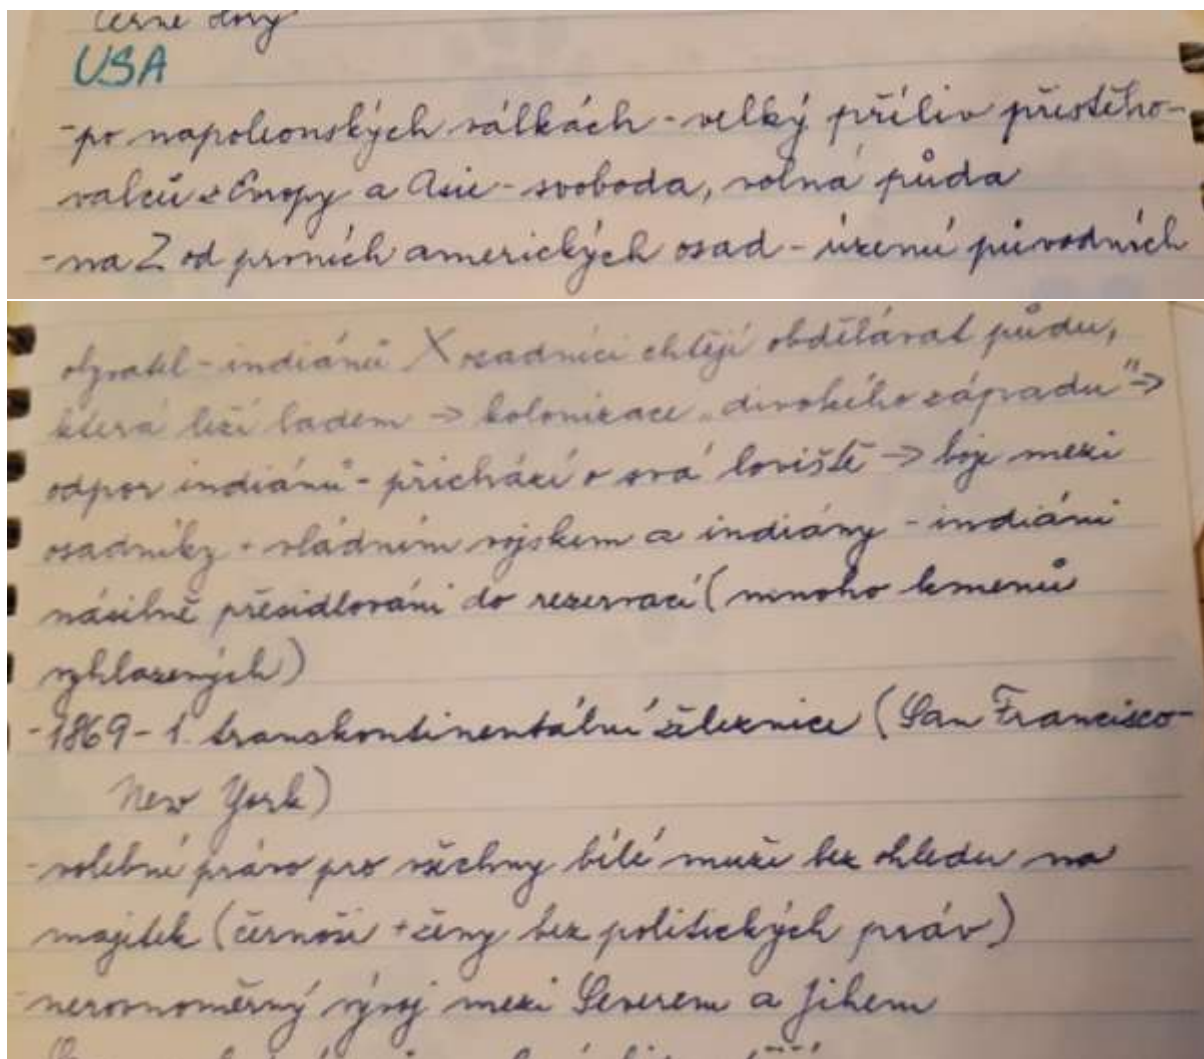 Černé Hory
USA
-po napoleonských válkách - velký příliv přistěho-
valců z Evropy a Asie - svoboda, volná půda
-na Z od prvních amerických osad - území původních
obyvatel - indiánů X osadníci chtějí obdělávat půdu,
která leží ladem → kolonizace „divokého západu" →
odpor indiánů - přichází o svá loviště → boje mezi
osadníky + vládním vojskem a indiány - indiáni
násilně přesidlováni do rezervací (mnoho kmenů
vyhlazených)
-1869 - 1. transkontinentální železnice (San Francisco-
New York)
-volební právo pro všechny bílé muže bez ohledu na
majitek (černoši + ženy bez politických práv)
-nerovnoměrný vývoj mezi Severem a Jihem